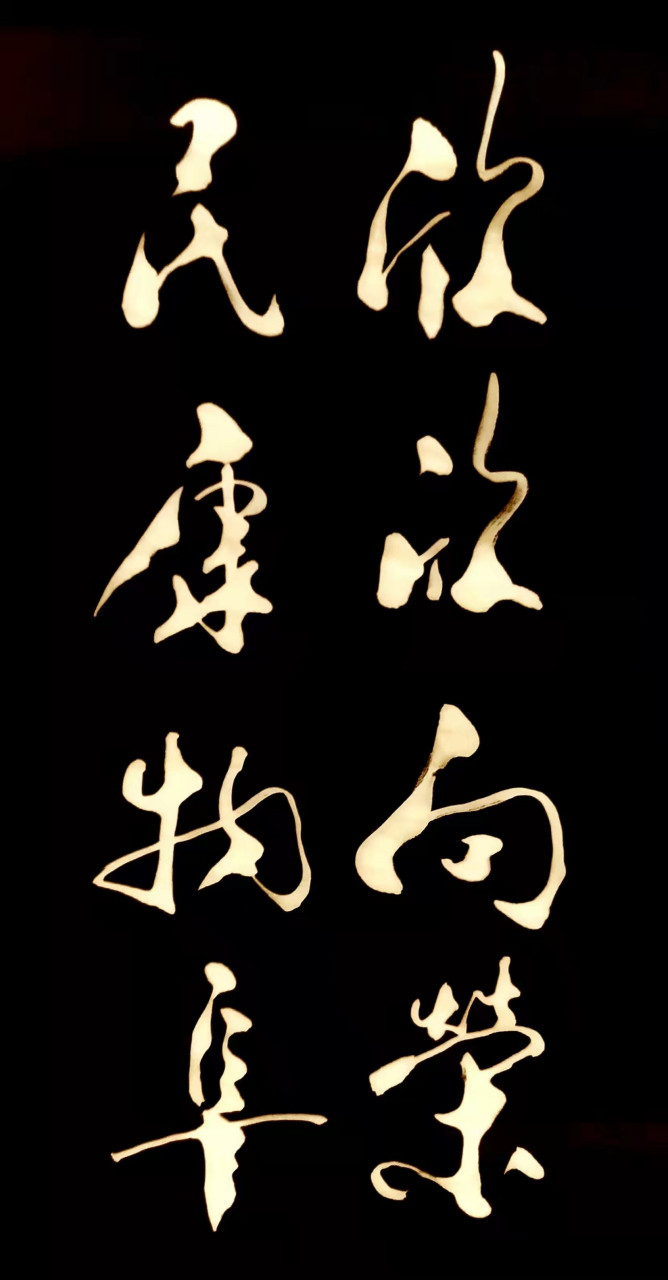 欣欣向榮
民康物阜